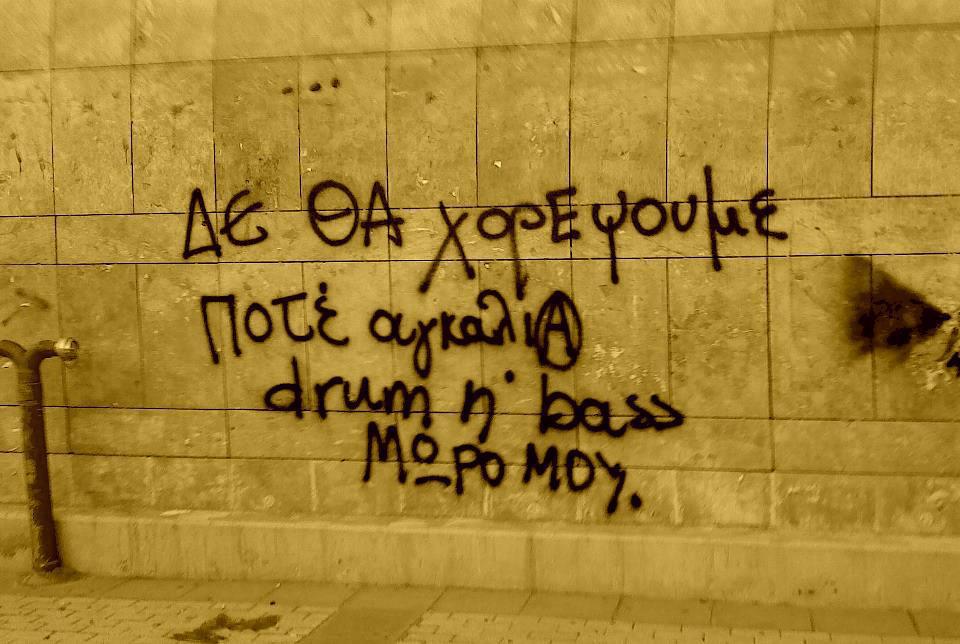 ΔΕ ΘΑ χορΕψουμε
ποτέ αγκαλιⒶ
drum n' bass
Μώρο ΜΟΥ.